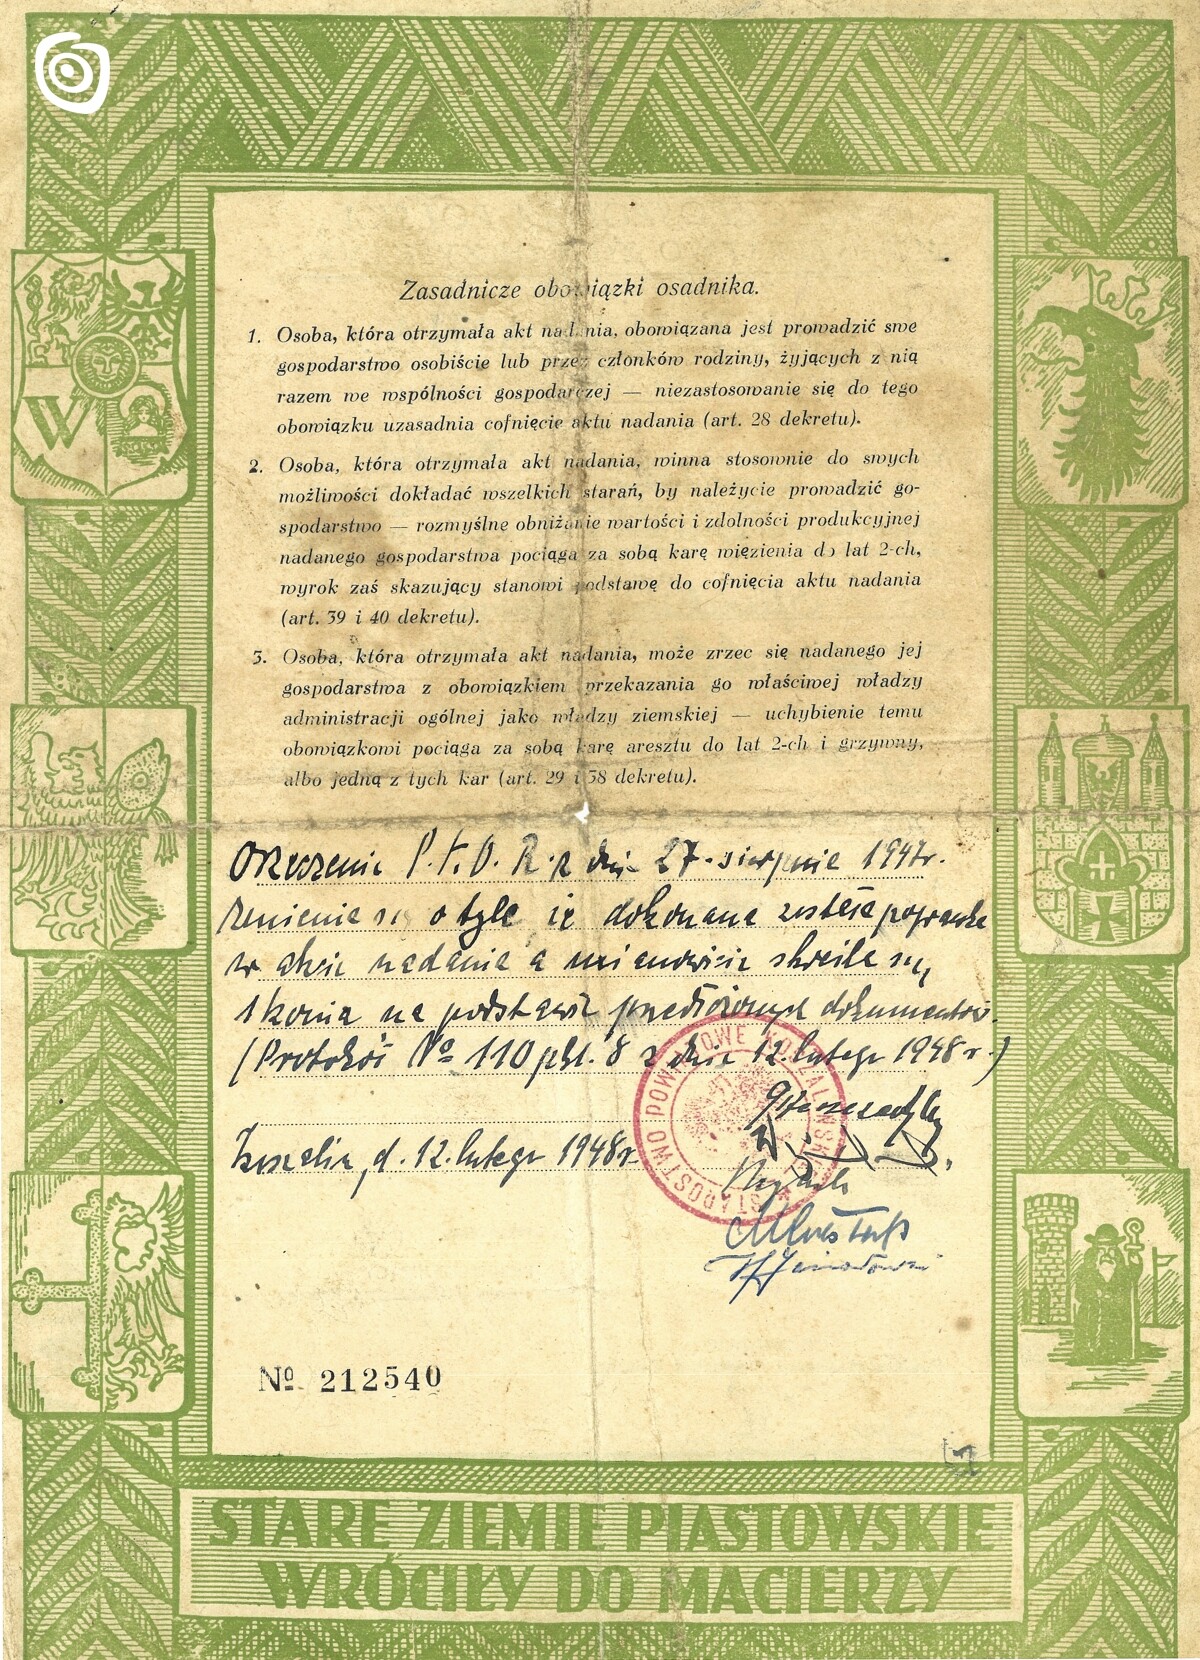 Zasadnicze obowiązki osadnika.
1. Osoba, która otrzymała akt nadania, obowiązana jest prowadzić swe
gospodarstwo osobiście lub przez członków rodziny, żyjących z nią
razem we wspólności gospodarczej — niezastosowanie się do tego
obowiązku uzasadnia cofnięcie aktu nadania (art. 28 dekretu).
2. Osoba, która otrzymała akt nadania, winna stosownie do swych
możliwości dokładać wszelkich starań, by należycie prowadzić go-
spodarstwo — rozmyślne obniżanie wartości i zdolności produkcyjnej
nadanego gospodarstwa pociąga za sobą karę więzienia do lat 2-ch,
wyrok zaś skazujący stanowi podstawę do cofnięcia aktu nadania
(art. 39 i 40 dekretu).
3. Osoba, która otrzymała akt nadania, może zrzec się nadanego jej
gospodarstwa z obowiązkiem przekazania go właściwej władzy
administracji ogólnej jako władzy ziemskiej — uchybienie temu
obowiązkowi pociąga za sobą karę aresztu do lat 2-ch i grzywny,
albo jedną z tych kar (art. 29 i 38 dekretu).
Orzeczenie P. K. O. R. z dnia 27. sierpnia 1947r.
zmienia się o tyle iż dokonana została poprawka
w akcie nadania a mianowicie skreśla się
1 konia na podstawie przedłożonych dokumentów.
(Protokół No 110 pkt. 8 z dnia 12. lutego 1948 r.)
Koszalin, d. 12. lutego 1948 r.
STAROSTWO POWIATOWE KOSZALIŃSKIE
No 212540
W
STARE ZIEMIE PIASTOWSKIE
WRÓCIŁY DO MACIERZY